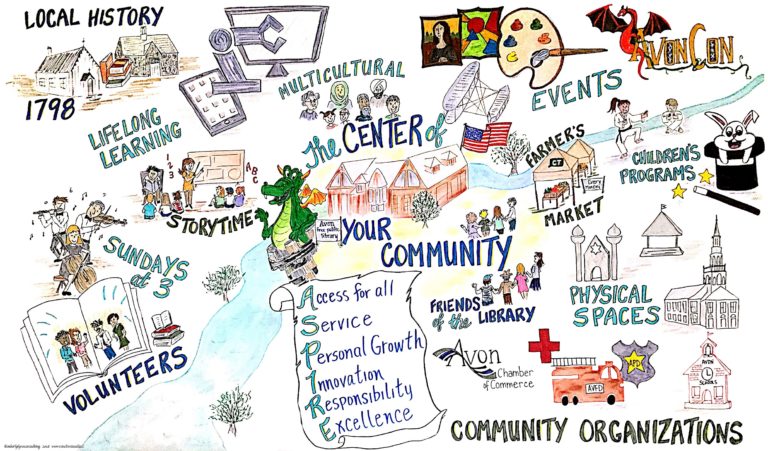 LOCAL HISTORY
1798
LIFELONG
LEARNING
MULTICULTURAL
EVENTS
AVONCON
The CENTER of
YOUR COMMUNITY
1
2
3
A
B
C
STORYTIME
Avon
free public
library
FARMER'S
MARKET
CT
CHILDREN'S
PROGRAMS
SUNDAYS
at 3
VOLUNTEERS
Access for all
Service
Personal Growth
Innovation
Responsibility
Excellence
FRIENDS
of the LIBRARY
PHYSICAL
SPACES
Avon
Chamber
of Commerce
AVFD
APD
AVON
SCHOOLS
COMMUNITY ORGANIZATIONS